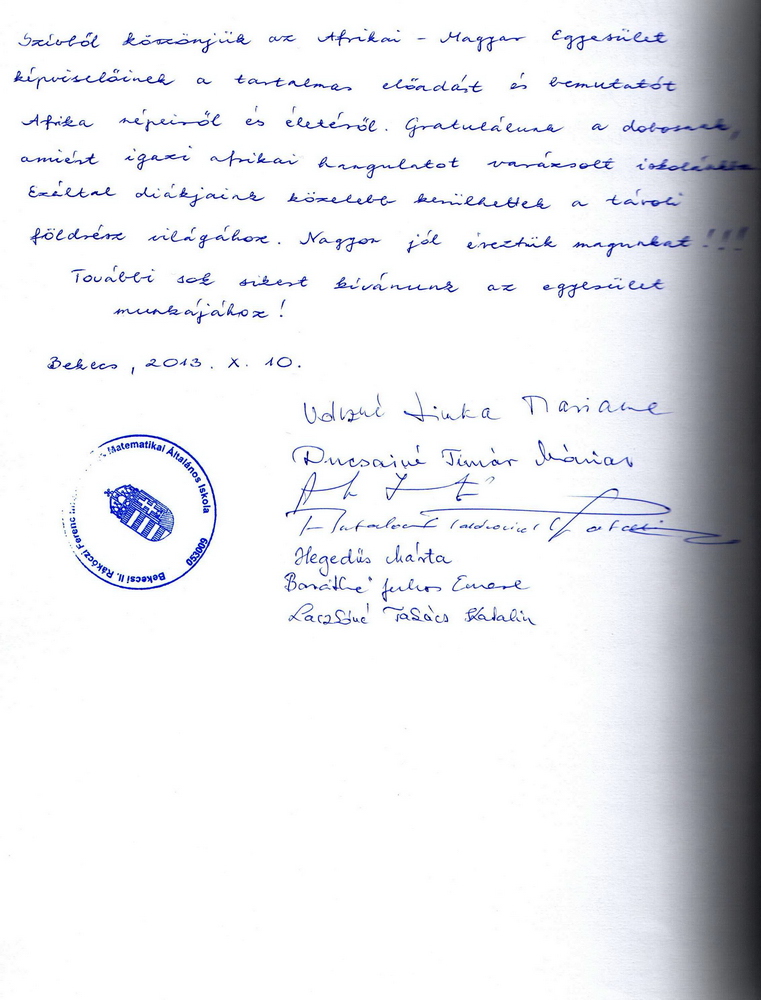 Szívből köszönjük az Afrikai - Magyar Egyesület
képviselőinek a tartalmas előadást és bemutatót
Afrika népeiről és életéről. Gratulálunk a dobosnak,
amiért igazi afrikai hangulatot varázsolt
Ezáltal diákjaink közelebb kerülhettek a távoli
földrész világához. Nagyon jól éreztük magunkat!!!
További sok sikert kívánunk az egyesület
munkájához!
Bekecs, 2013. X. 10.
Marianne
Ducsainé Timár Mária
Hegedűs Márta
Baráthné Juhos Emese
Laczkóné Takács Katalin
Bekecsi II. Rákóczi Ferenc Matematikai Általános Iskola
053009